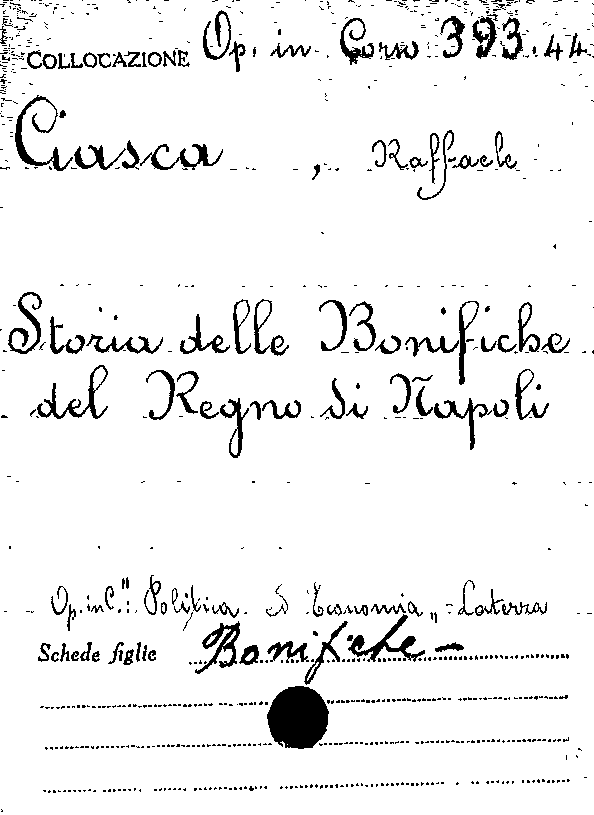 COLLOCAZIONE Op. in Corso 393.44
Ciasca, Raffaele
Storia delle Bonifiche
del Regno di Napoli
Op. in C. "Politica ed Economia" = Laterza
Schede figlie Bonifiche -